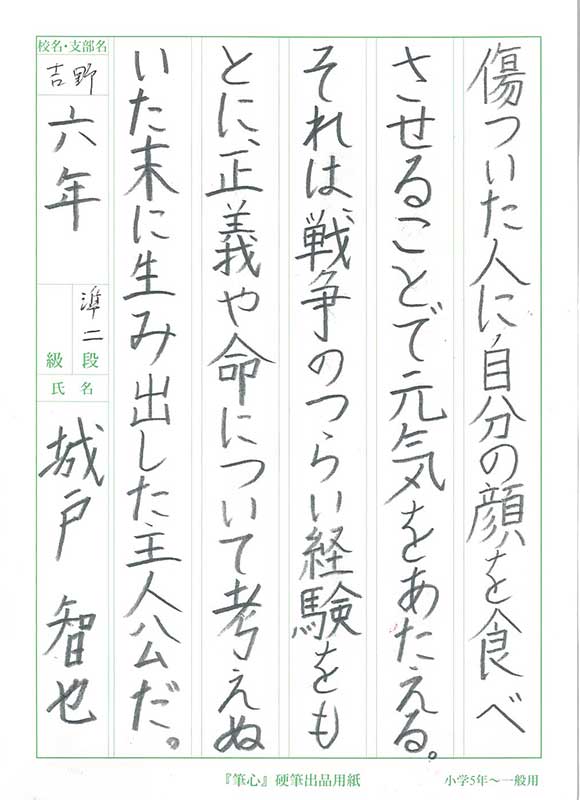 傷ついた人に、自分の顔を食べ
させることで元気をあたえる。
それは、戦争のつらい経験をも
とに、正義や命について考えぬ
いた末に生み出した主人公だ。
校名・支部名
吉野
六年
準二
段
級
氏名
城戸 智也
『筆心』硬筆出品用紙
小学5年～一般用